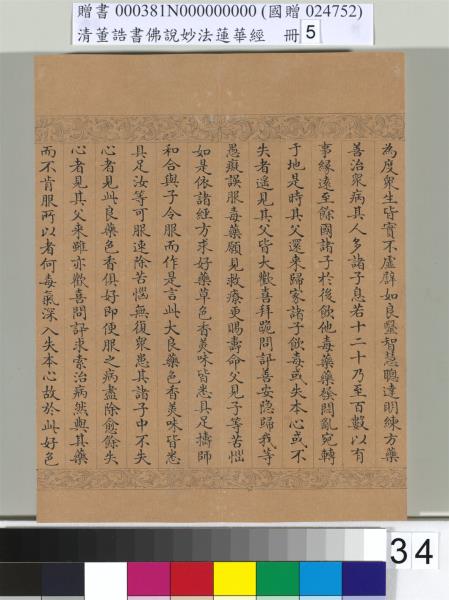 贈書 000381N000000000 (國贈 024752)
清董誥書佛說妙法蓮華經 冊 5
為度眾生皆實不虛譬如良醫智慧聰達明練方藥
善治眾病其人多諸子息若十二十乃至百數以有
事緣遠至餘國諸子於後飲他毒藥藥發悶亂宛轉
于地是時其父還來歸家諸子飲毒或失本心或不
失者遙見其父皆大歡喜拜跪問訊善安隱歸我等
愚癡誤服毒藥願見救療更賜壽命父見子等苦惱
如是依諸經方求好藥草色香美味皆悉具足擣篩
和合與子令服而作是言此大良藥色香美味皆悉
具足汝等可服速除苦惱無復眾患其諸子中不失
心者見此良藥色香俱好即便服之病盡除愈餘失
心者見其父來雖亦歡喜問訊求索治病然與其藥
而不肯服所以者何毒氣深入失本心故於此好色
34